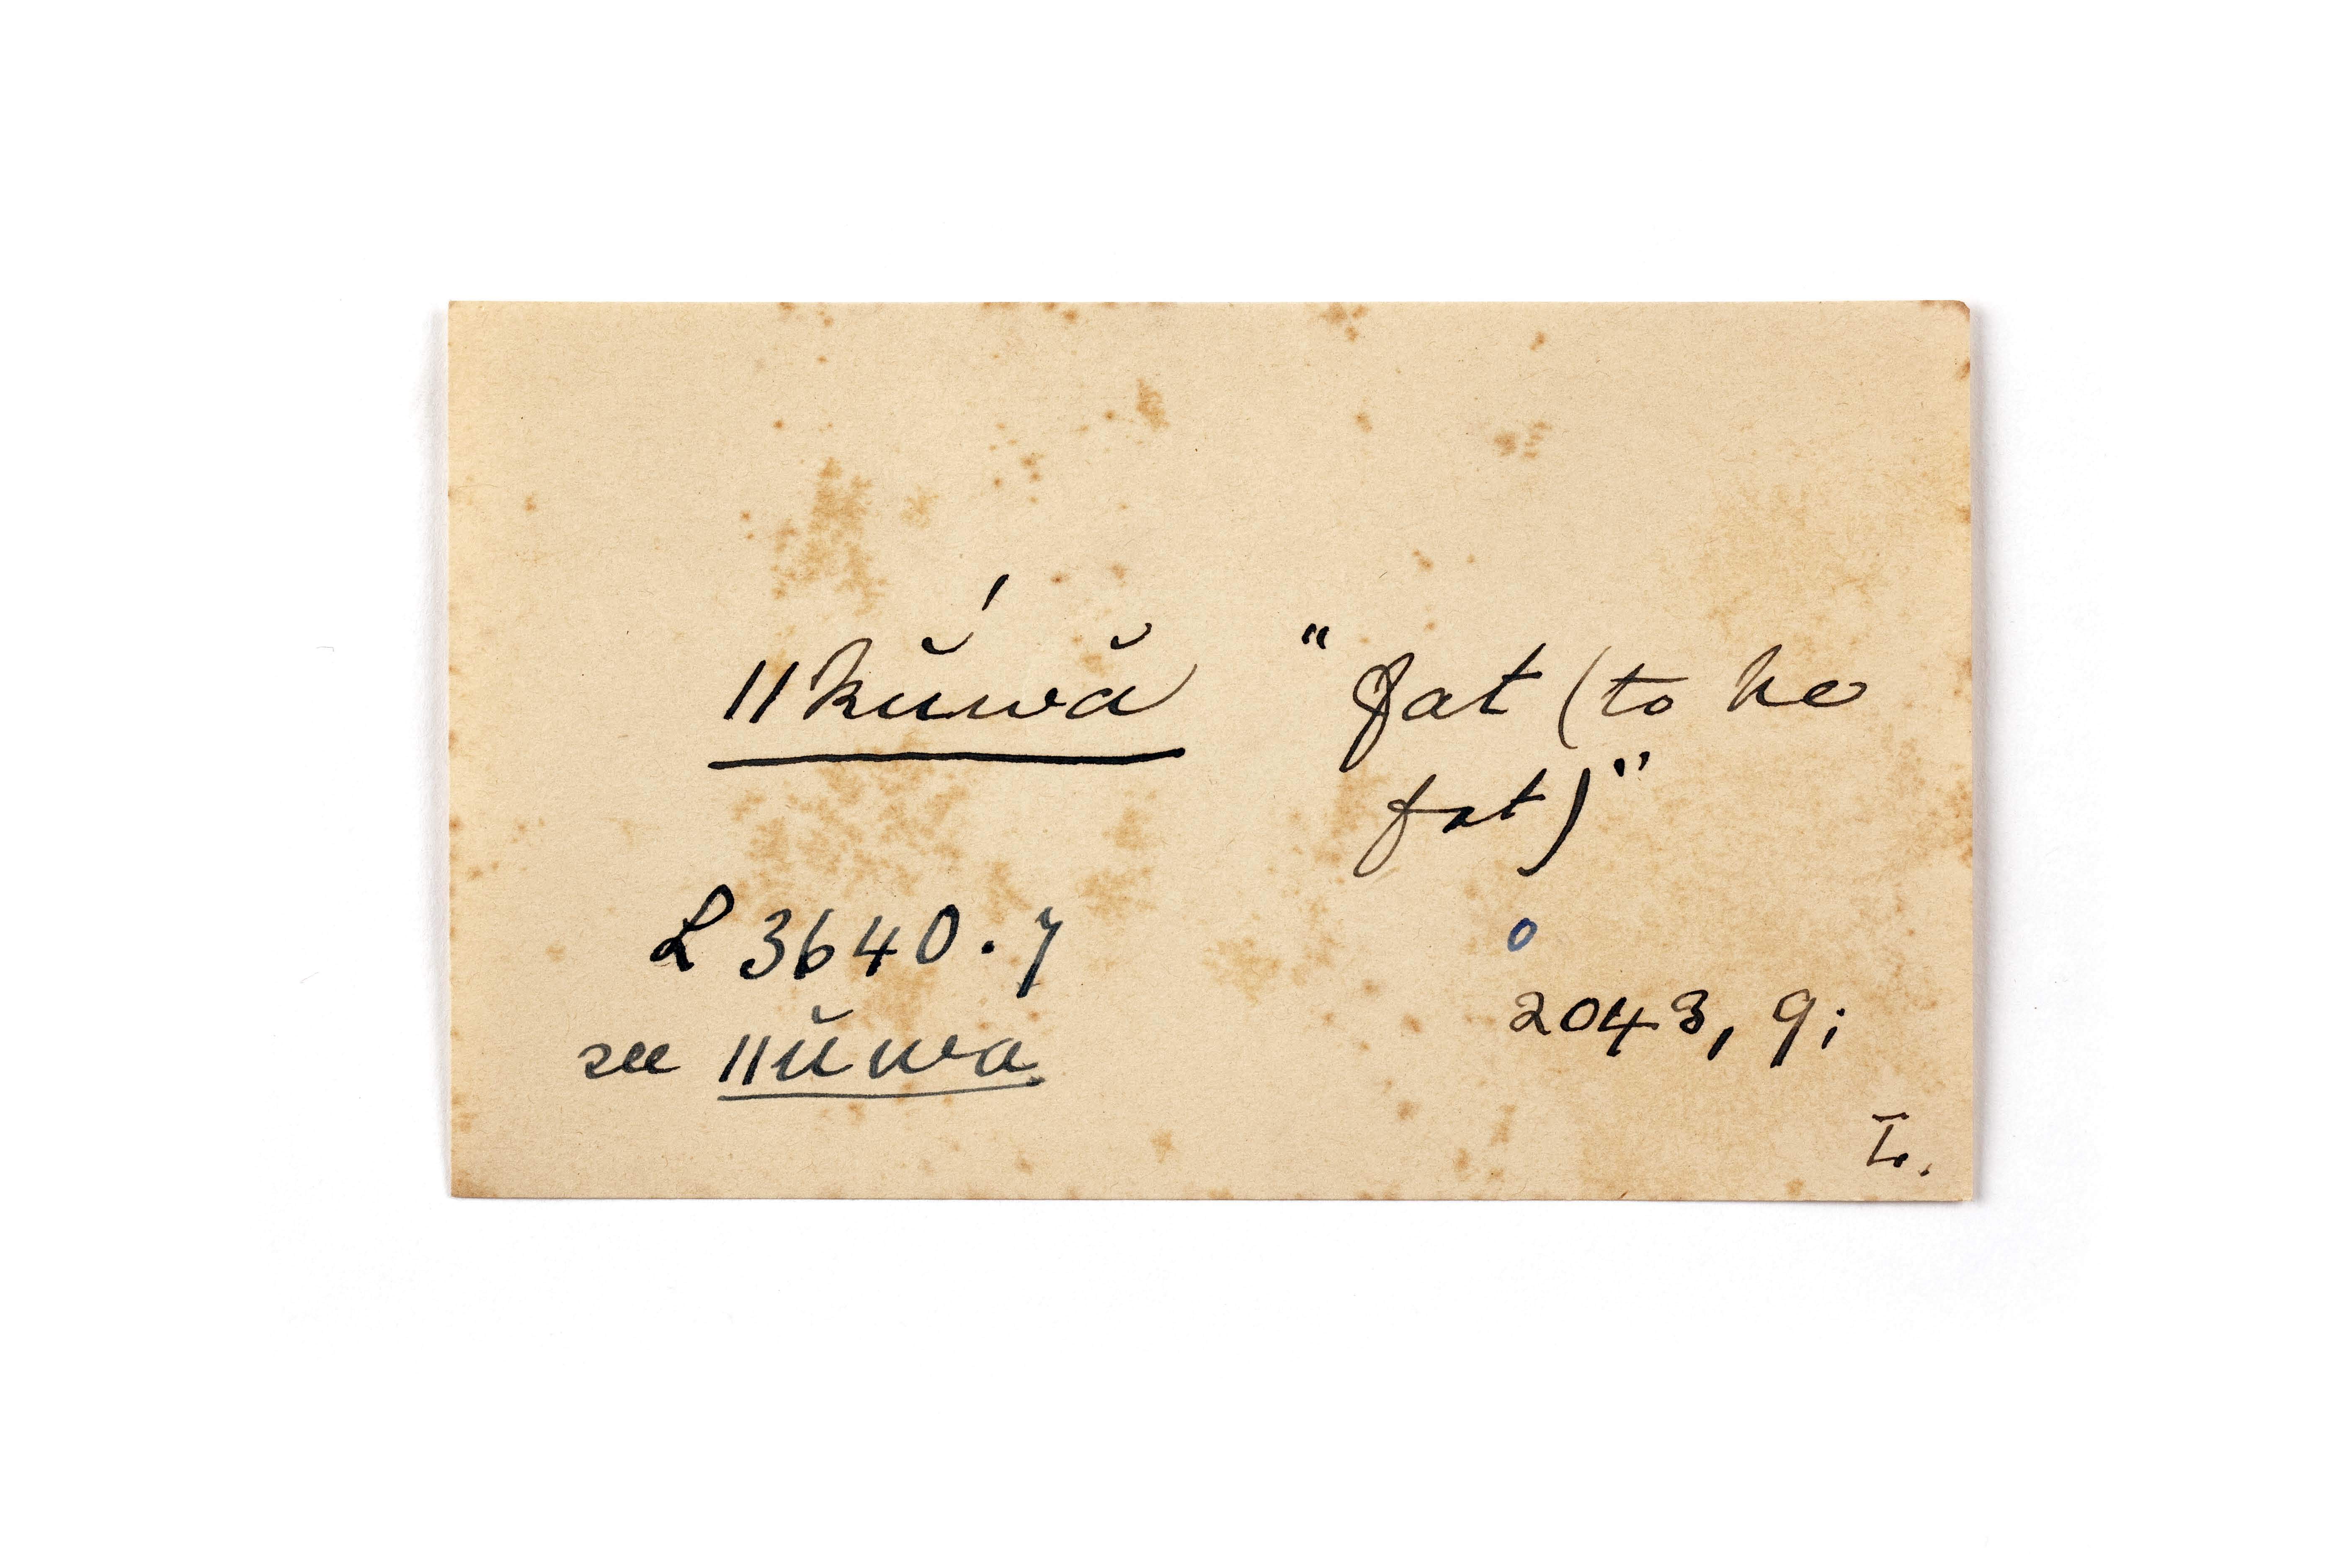 ǁkŭ́wă "fat (to be
fat)"
L 3640.7
o
see ǁŭwa
2043, 9;
L.